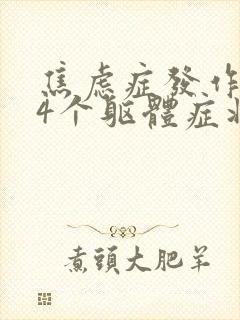 焦虑症發作
4个躯體症状
煮頭大肥羊